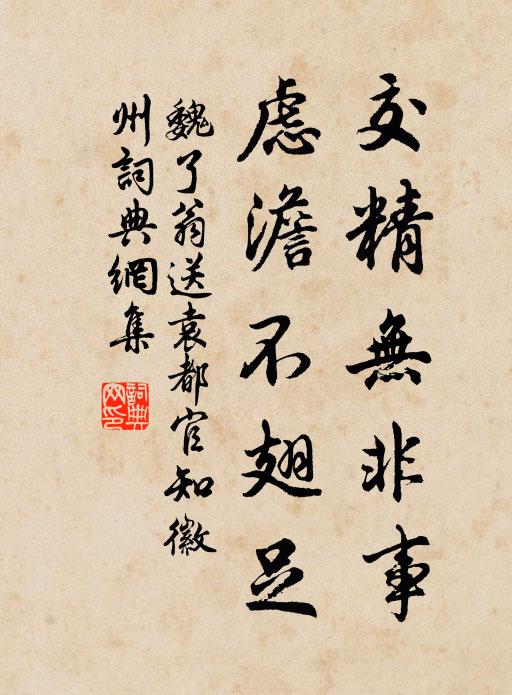 交精無非事
慮澹不翅足
魏了翁送袁都官知徽
州詞典網集
詞典
网印